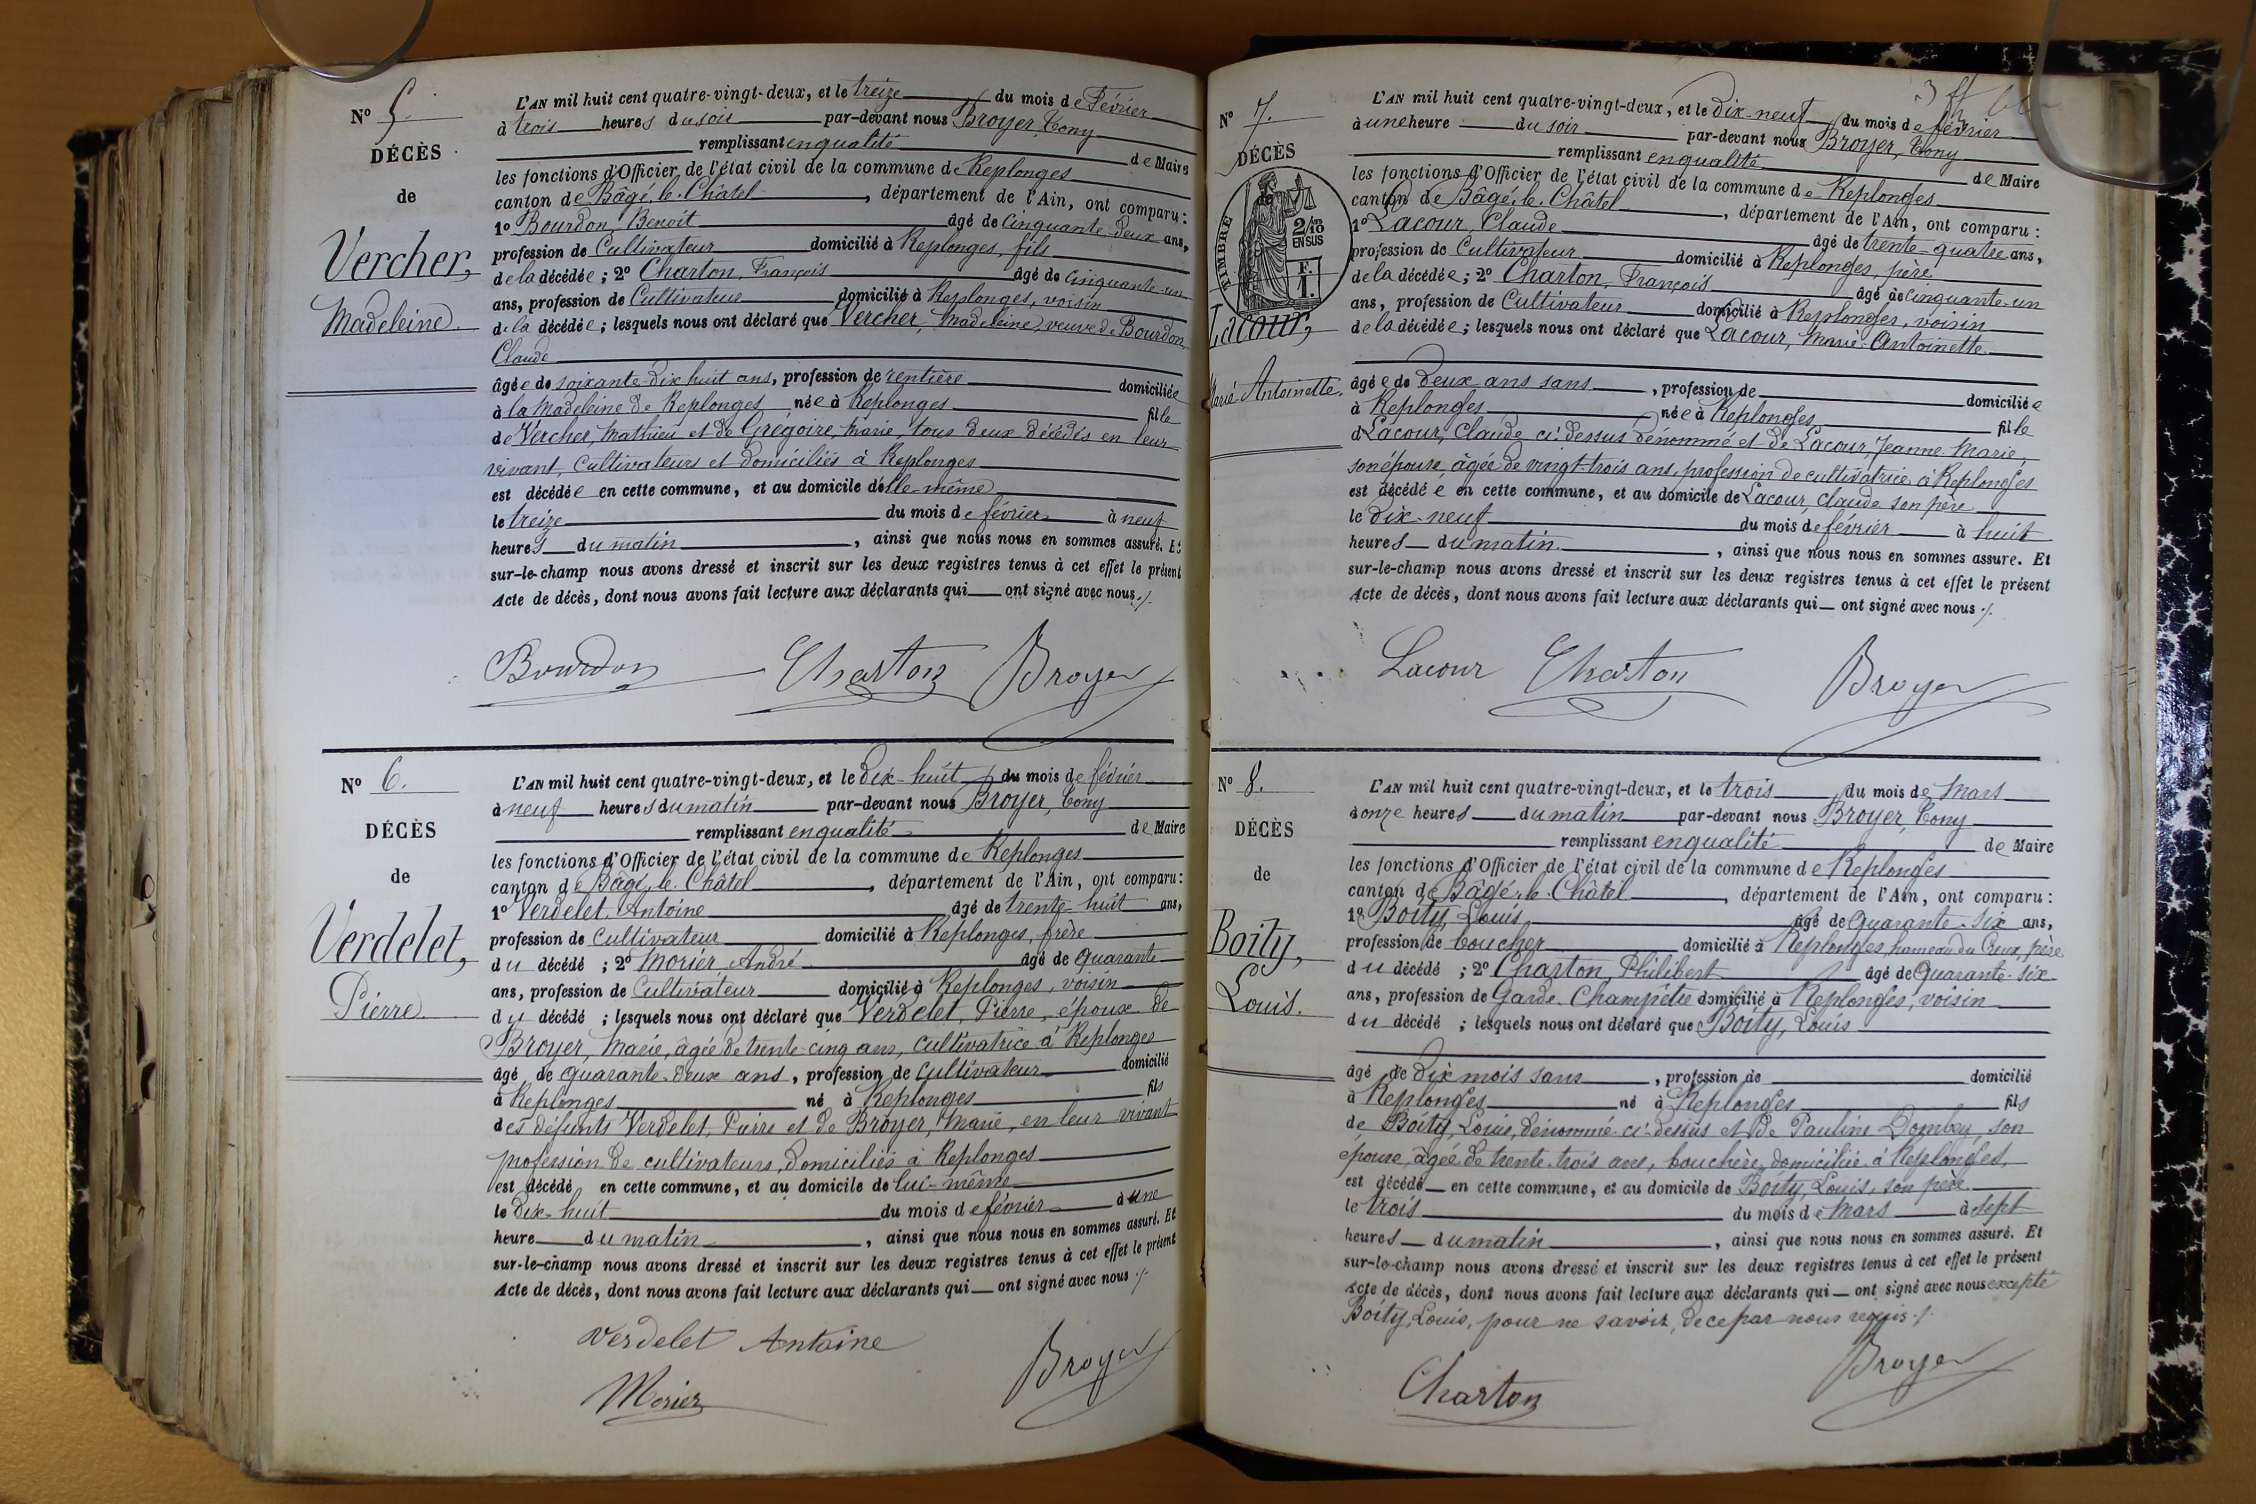 N° 5.
DÉCÈS
de
Vercher,
Madeleine.
L'AN mil huit cent quatre-vingt-deux, et le treize du mois de Février
à trois heures du soir par-devant nous Broyer, Tony
remplissant en qualité de Maire
les fonctions d'Officier de l'état civil de la commune de Replonges
canton de Bâgé-le-Châtel, département de l'Ain, ont comparu :
1° Bourdon, Benoît âgé de cinquante-deux ans,
profession de Cultivateur domicilié à Replonges, fils
de la décédée ; 2° Charton, François âgé de cinquante-un
ans, profession de Cultivateur domicilié à Replonges, voisin
de la décédée ; lesquels nous ont déclaré que Vercher, Madeleine, veuve de Bourdon
Claude
âgée de soixante-dix huit ans, profession de rentière domiciliée
à la Madeleine de Replonges née à Replonges fille
de Vercher, Mathieu et de Grégoire, Marie, tous deux décédés en leur
vivant, cultivateurs et domiciliés à Replonges
est décédée en cette commune, et au domicile d'elle-même
le treize du mois de février à neuf
heures du matin, ainsi que nous nous en sommes assuré. Et
sur-le-champ nous avons dressé et inscrit sur les deux registres tenus à cet effet le présent
Acte de décès, dont nous avons fait lecture aux déclarants qui ont signé avec nous ./.
Bourdon Charton Broyer
N° 6.
DÉCÈS
de
Verdelet,
Pierre.
L'AN mil huit cent quatre-vingt-deux, et le dix-huit du mois de février
à neuf heures du matin par-devant nous Broyer, Tony
remplissant en qualité de Maire
les fonctions d'Officier de l'état civil de la commune de Replonges
canton de Bâgé-le-Châtel, département de l'Ain, ont comparu :
1° Verdelet, Antoine âgé de trente-huit ans,
profession de cultivateur domicilié à Replonges, frère
du décédé ; 2° Morier, André âgé de quarante
ans, profession de Cultivateur domicilié à Replonges, voisin
du décédé ; lesquels nous ont déclaré que Verdelet, Pierre, époux de
Broyer, Marie, âgée de trente-cinq ans, cultivatrice à Replonges
âgé de quarante-deux ans, profession de cultivateur domicilié
à Replonges né à Replonges fils
des défunts Verdelet, Pierre et de Broyer, Marie, en leur vivant
profession de cultivateurs, domiciliés à Replonges
est décédé en cette commune, et au domicile de lui-même
le dix-huit du mois de février à une
heure du matin, ainsi que nous nous en sommes assuré. Et
sur-le-champ nous avons dressé et inscrit sur les deux registres tenus à cet effet le présent
Acte de décès, dont nous avons fait lecture aux déclarants qui ont signé avec nous ./.
Verdelet Antoine
Morier Broyer
N° 7.
DÉCÈS
de
TIMBRE
2/10
EN SUS
F.
1.
Lacour,
Marie Antoinette.
L'AN mil huit cent quatre-vingt-deux, et le dix-neuf du mois de février
à une heure du soir par-devant nous Broyer, Tony
remplissant en qualité de Maire
les fonctions d'Officier de l'état civil de la commune de Replonges
canton de Bâgé-le-Châtel, département de l'Ain, ont comparu :
1° Lacour, Claude âgé de trente-quatre ans,
profession de Cultivateur domicilié à Replonges, père
de la décédée ; 2° Charton, François âgé de cinquante-un
ans, profession de Cultivateur domicilié à Replonges, voisin
de la décédée ; lesquels nous ont déclaré que Lacour, Marie-Antoinette
âgée de deux ans sans, profession de domiciliée
à Replonges née à Replonges fille
d Lacour, Claude ci-dessus dénommé et de Lacour, Jeanne-Marie,
son épouse, âgée de vingt-trois ans, profession de cultivatrice à Replonges
est décédée en cette commune, et au domicile de Lacour, Claude son père
le dix-neuf du mois de février à huit
heures du matin, ainsi que nous nous en sommes assuré. Et
sur-le-champ nous avons dressé et inscrit sur les deux registres tenus à cet effet le présent
Acte de décès, dont nous avons fait lecture aux déclarants qui ont signé avec nous ./.
Lacour Charton Broyer
N° 8.
DÉCÈS
de
Boity,
Louis.
L'AN mil huit cent quatre-vingt-deux, et le trois du mois de Mars
à onze heures du matin par-devant nous Broyer, Tony
remplissant en qualité de Maire
les fonctions d'Officier de l'état civil de la commune de Replonges
canton de Bâgé-le-Châtel, département de l'Ain, ont comparu :
1° Boity, Louis âgé de quarante-six ans,
profession de boucher domicilié à Replonges, hameau du Creux, père
du décédé ; 2° Charton, Philibert âgé de quarante-six
ans, profession de Garde-Champêtre domicilié à Replonges, voisin
du décédé ; lesquels nous ont déclaré que Boity, Louis
âgé de dix mois sans, profession de domicilié
à Replonges né à Replonges fils
de Boity, Louis, dénommé ci-dessus et de Pauline Dombey, son
épouse, âgée de trente-trois ans, bouchère, domiciliée à Replonges,
est décédé en cette commune, et au domicile de Boity, Louis, son père
le trois du mois de Mars à sept
heures du matin, ainsi que nous nous en sommes assuré. Et
sur-le-champ nous avons dressé et inscrit sur les deux registres tenus à cet effet le présent
Acte de décès, dont nous avons fait lecture aux déclarants qui ont signé avec nous excepté
Boity, Louis, pour ne savoir, de ce par nous requis ./.
Charton Broyer